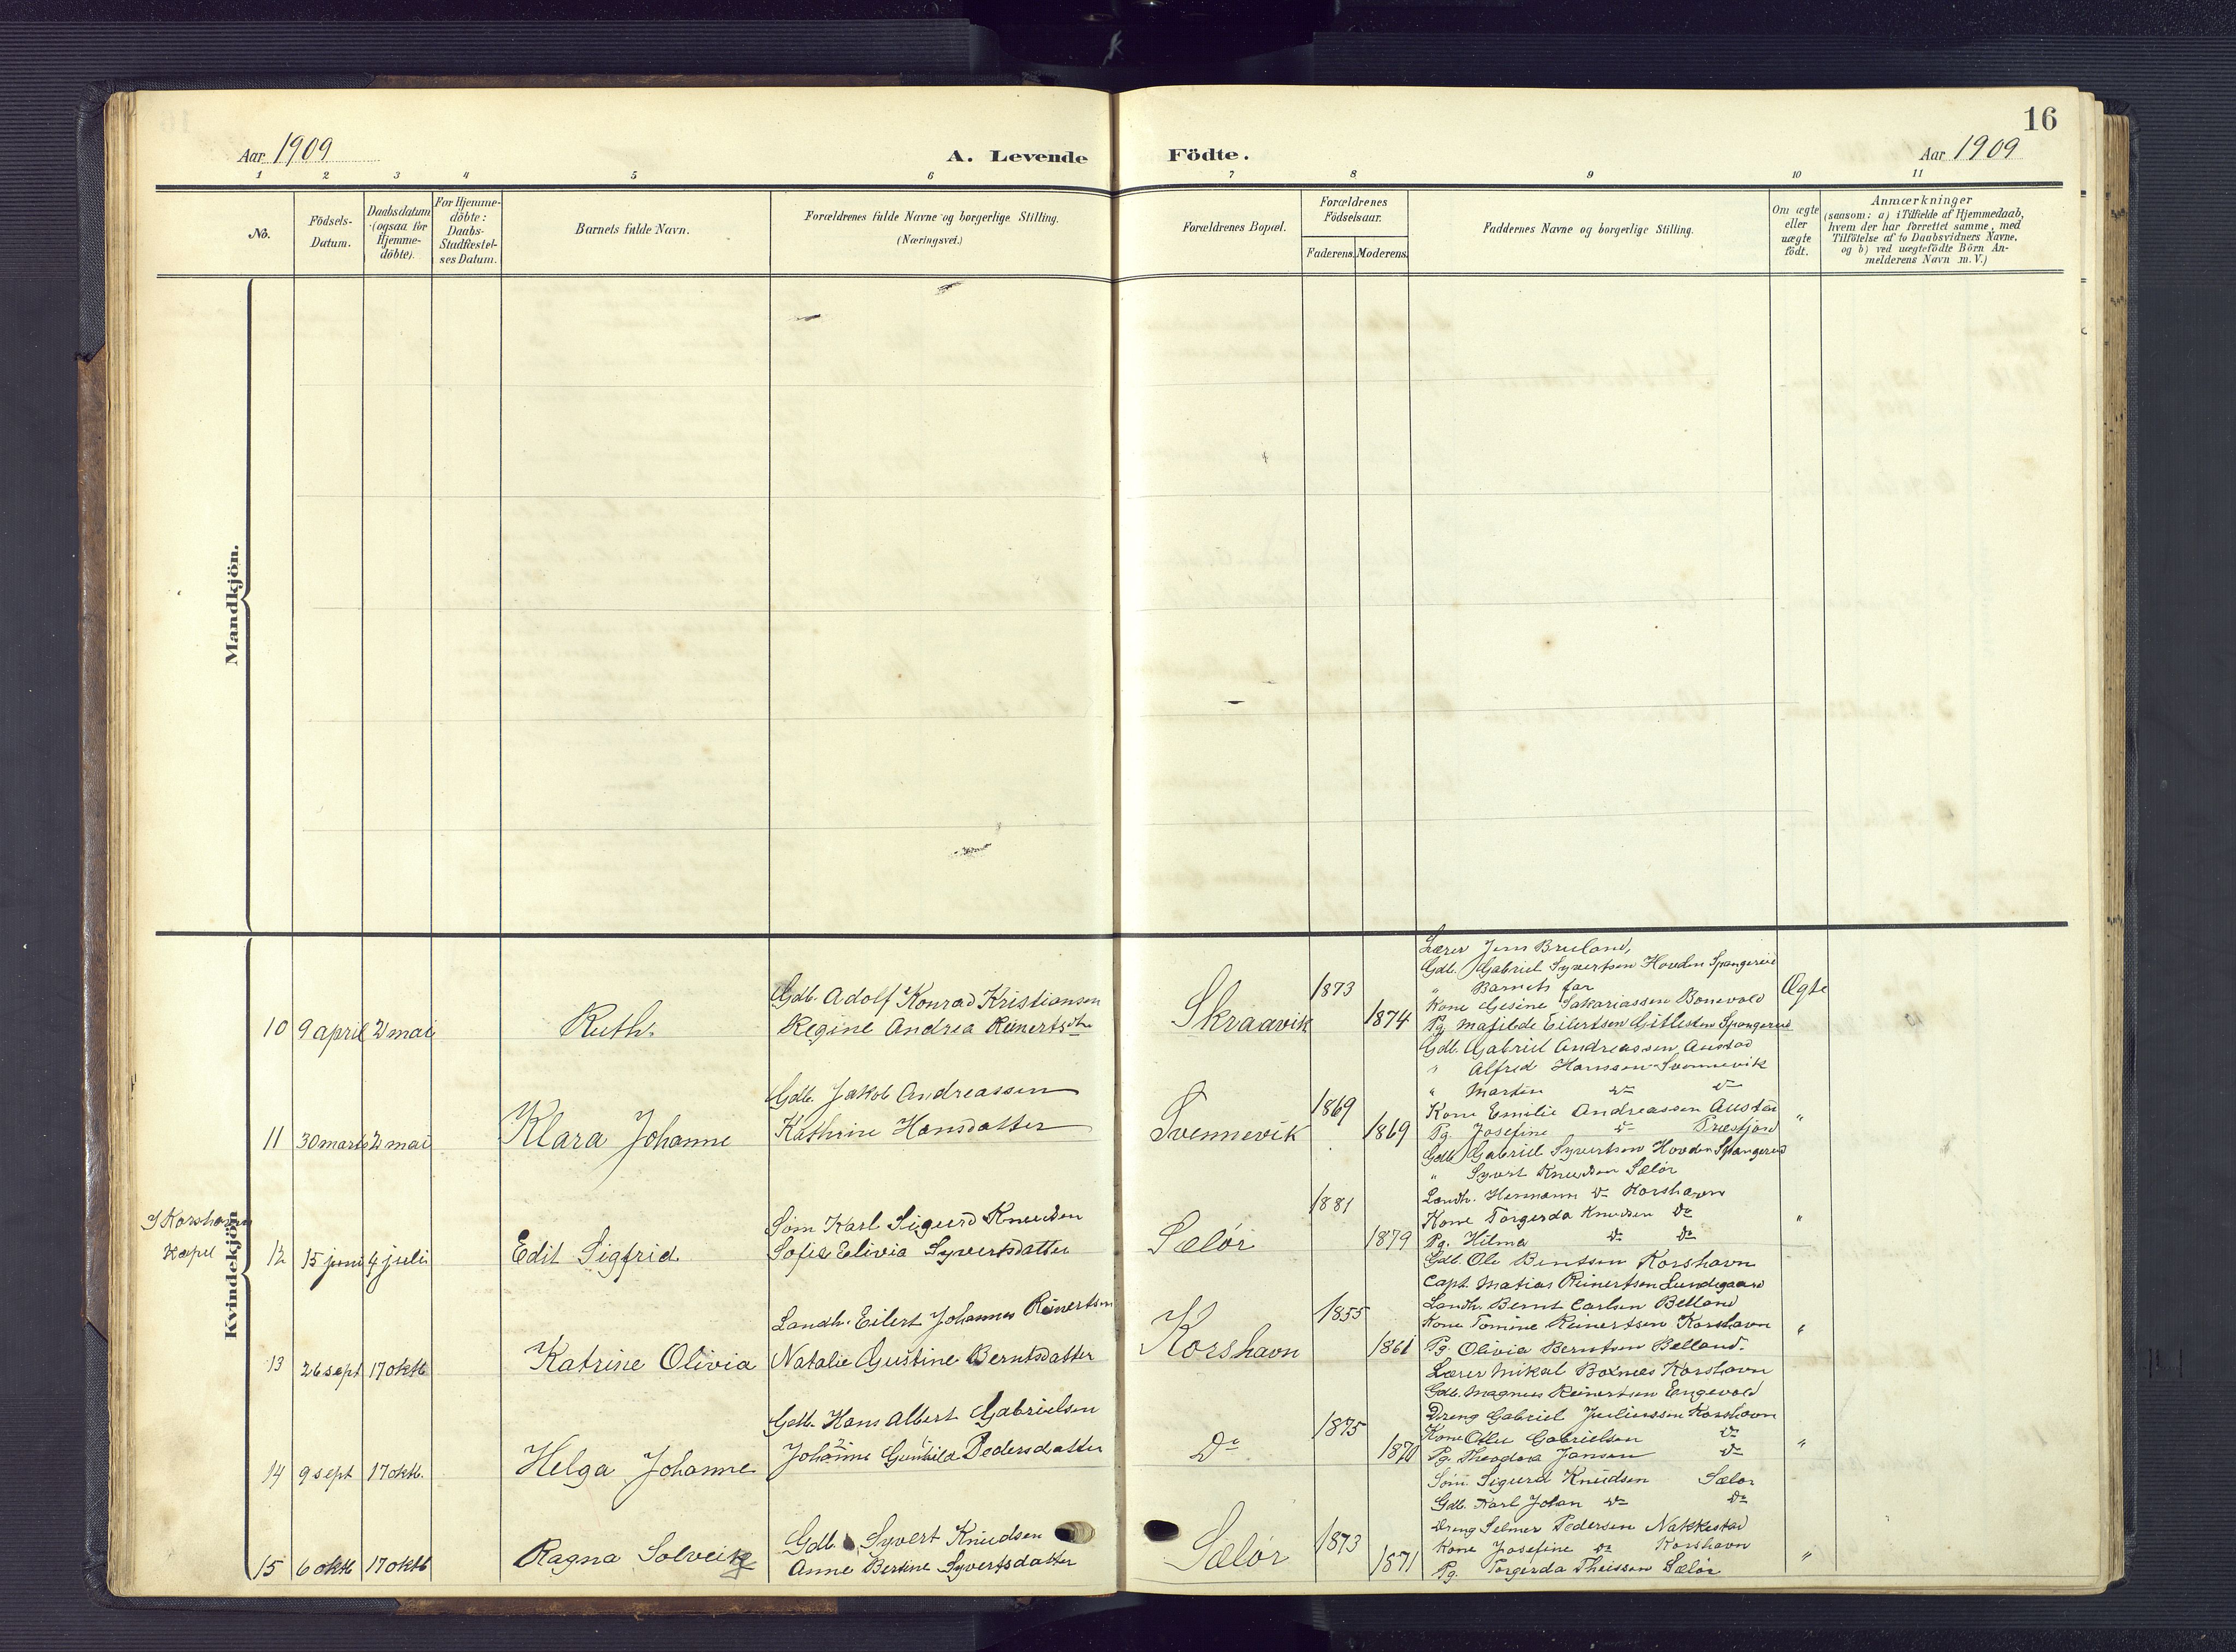 16
Aar 1909
A. Levende Födte.
Aar 1909
1 2 3 4 5 6 7 8 9 10 11
No.
Födsels-
Datum.
Daabsdatum
(ogsaa for
Hjemme-
döbte).
For Hjemme-
döbte:
Daabs-
Stadfæstel-
ses Datum.
Barnets fulde Navn.
Forældrenes fulde Navne og borgerlige Stilling.
(Næringsvei.)
Forældrenes Bopæl.
Forældrenes
Födselsaar.
Faderens.
Moderens.
Faddernes Navne og borgerlige Stilling.
Om ægte
eller
uægte
födt.
Anmærkninger
(saasom: a) i Tilfælde af Hjemmedaab,
hvem der har forrettet samme, med
Tilföielse af to Daabsvidners Navne,
og b) ved uægtefödte Börn An-
melderens Navn m.V.)
Mandkjön.
Kvindekjön
10 9 april 2 mai
Ruth.
Gdb. Adolf Konrad Kristiansen
Regine Andrea Reinertsdtr
Skraavik
1873
1874
Lærer Jens Bruland,
Gdb. Gabriel Syvertsen Hovden Spangereid
" Barnets far
Kone Gesine Sakariassen Bonevold
Pg. Matilde Eilertsen Gitlesten Spangereid
Ægte
11 30 marts 2 mai
Klara Johanne
Gdb. Jakob Andreassen
Kathrine Hansdatter
Svennevik
1869
1869
Gdb. Gabriel Andreassen Austad
" Alfred Hanssen Svennevik
" Martin do do
Kone Emilie Andreassen Austad
Pg. Josefine do
"
I Korshavn
Kapel
12 15 juni 4 juli
Edit Sigfrid
Søm Karl Sigurd Knudsen
Sofie Elivia Syvertsdatter
Sælør
1881
1879
Gdb. Gabriel Syvertsen Hovden Spangereid
" Syvert Knudsen Sælør
Landh. Hermann do Korshavn
Kone Torgerda Knudsen do
Pg. Hilma do do
"
13 26 sept 17 oktb
Katrine Olivia
Landh. Eilert Johannes Reinertsen
Natalie Gustine Berntsdatter
Korshavn
1855
1861
Gdb. Ole Bentsen Korshavn
Capt. Matias Reinertsen Lundegaard
Landh. Bernt Carlsen Belland
Kone Tomine Reinertsen Korshavn
Pg. Olivia Berntsen Belland.
"
14 9 sept 17 oktb.
Helga Johanne
Gdb. Hans Albert Gabrielsen
Johanne Gunhild Pedersdatter
Do
1875
1870
Lærer Mikal Boxnæs Korshavn
Gdb. Magnus Reinertsen Engevold
Dreng Gabriel Juliussen Korshavn
Kone Gabrielsen do
Pg. Theodora Jansen do
"
15 6 oktb 17 oktb
Ragna Solveig
Gdb. Syvert Knudsen
Anne Bertine Syvertsdatter
Sælør
1873
1871
Søm Sigurd Knudsen Sælør
Gdb. Karl Johan do do
Dreng Selmer Pedersen Nakkestad
Kone Josefine do Korshavn
Pg. Torgerda Theissen Sælør
"